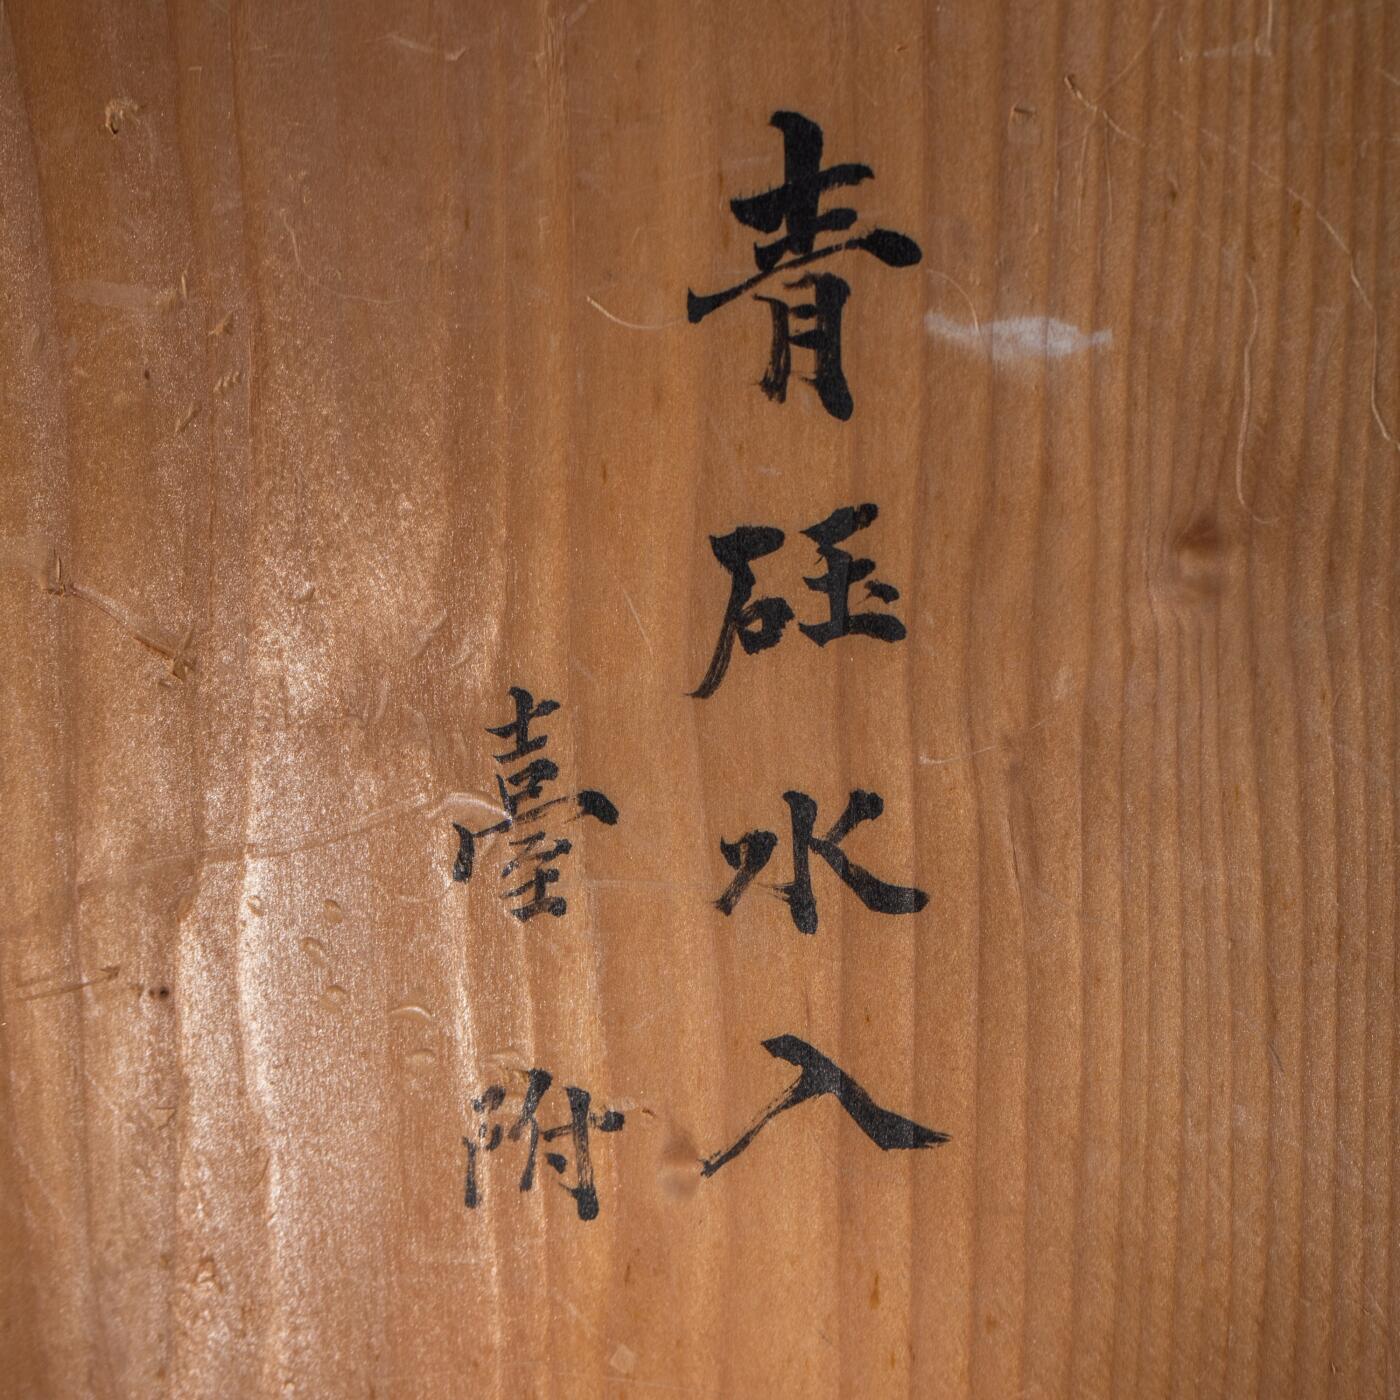 青砡水入
臺附